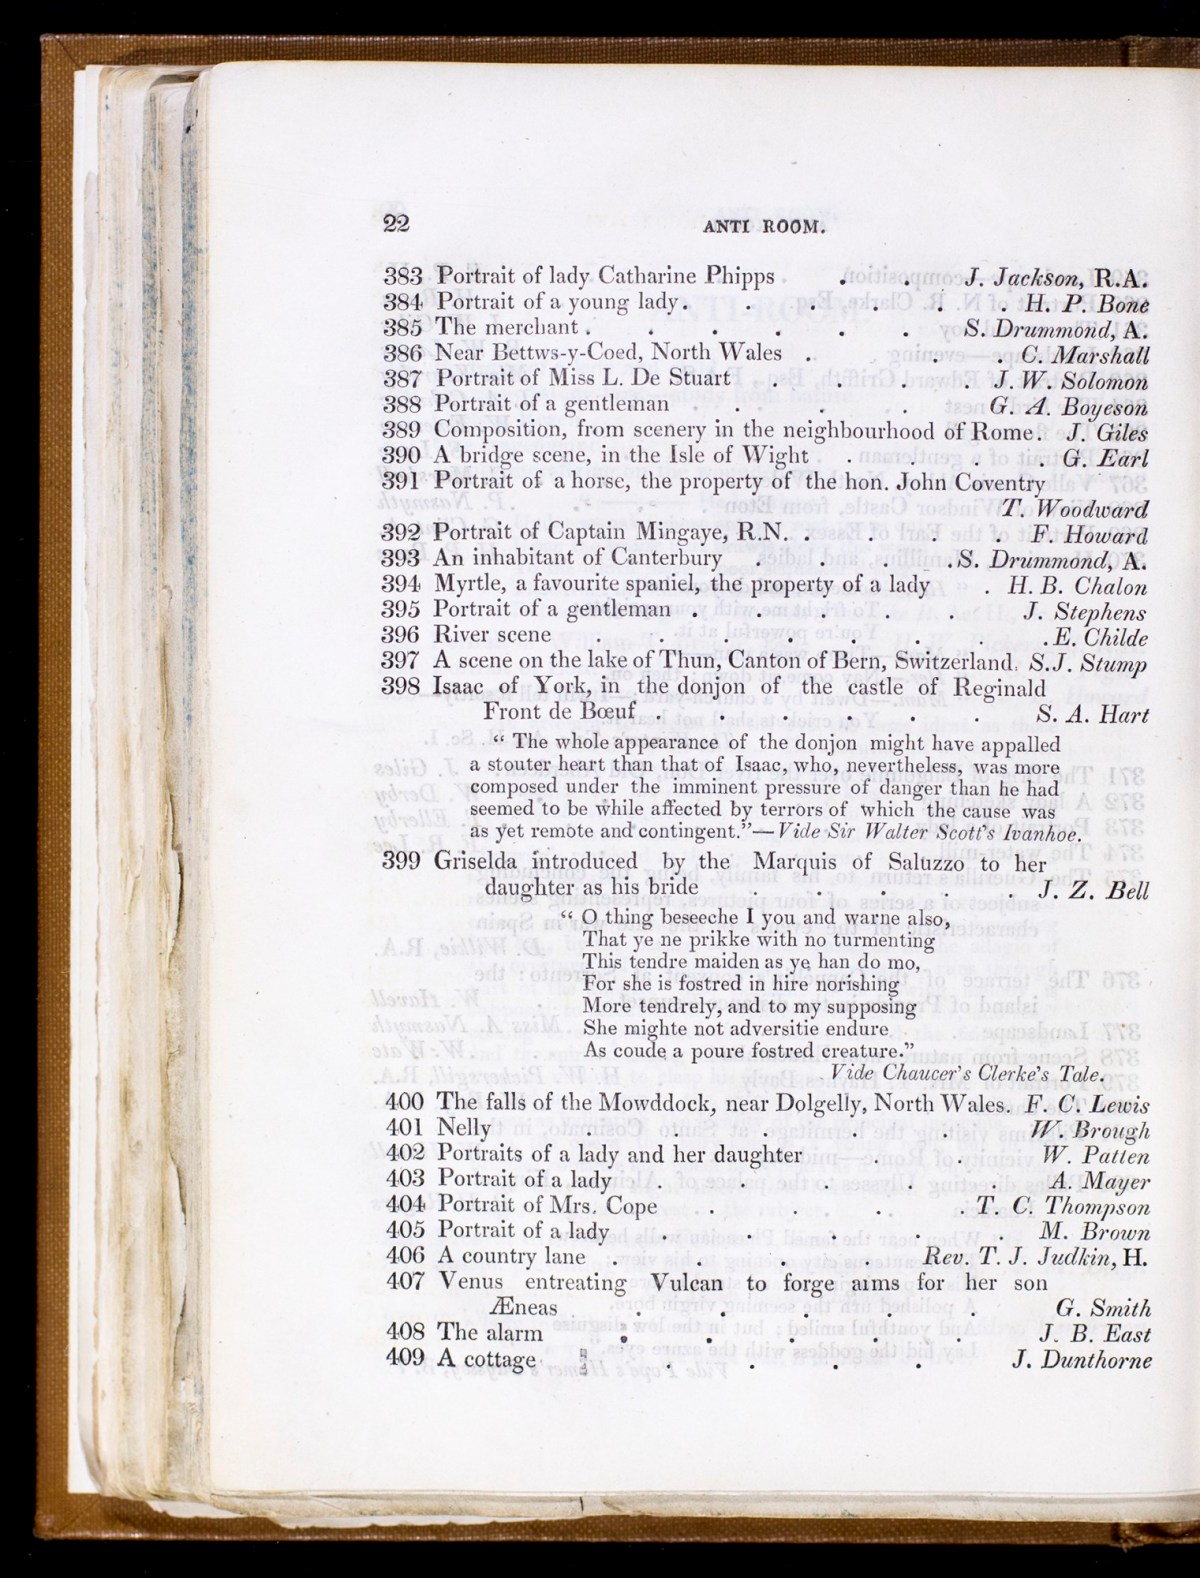 22 ANTI ROOM.
383 Portrait of lady Catharine Phipps . . J. Jackson, R.A.
384 Portrait of a young lady . . . . . . H. P. Bone
385 The merchant . . . . . . S. Drummond, A.
386 Near Bettws-y-Coed, North Wales . . . . C. Marshall
387 Portrait of Miss L. De Stuart . . . . J. W. Solomon
388 Portrait of a gentleman . . . . G. A. Boyeson
389 Composition, from scenery in the neighbourhood of Rome. J. Giles
390 A bridge scene, in the Isle of Wight . . . . G. Earl
391 Portrait of a horse, the property of the hon. John Coventry
T. Woodward
392 Portrait of Captain Mingaye, R.N. . . . . F. Howard
393 An inhabitant of Canterbury . . . . S. Drummond, A.
394 Myrtle, a favourite spaniel, the property of a lady . H. B. Chalon
395 Portrait of a gentleman . . . . . J. Stephens
396 River scene . . . . . . . E. Childe
397 A scene on the lake of Thun, Canton of Bern, Switzerland. S.J. Stump
398 Isaac of York, in the donjon of the castle of Reginald
Front de Bœuf . . . . . . S. A. Hart
“ The whole appearance of the donjon might have appalled
a stouter heart than that of Isaac, who, nevertheless, was more
composed under the imminent pressure of danger than he had
seemed to be while affected by terrors of which the cause was
as yet remote and contingent.”—Vide Sir Walter Scott's Ivanhoe.
399 Griselda introduced by the Marquis of Saluzzo to her
daughter as his bride . . . . . J. Z. Bell
“ O thing beseeche I you and warne also,
That ye ne prikke with no turmenting
This tendre maiden as ye han do mo,
For she is fostred in hire norishing
More tendrely, and to my supposing
She mighte not adversitie endure
As coude a poure fostred creature.”
Vide Chaucer's Clerke's Tale.
400 The falls of the Mowddock, near Dolgelly, North Wales. F. C. Lewis
401 Nelly . . . . . . W. Brough
402 Portraits of a lady and her daughter . . W. Patten
403 Portrait of a lady . . . . . A. Mayer
404 Portrait of Mrs. Cope . . . . T. C. Thompson
405 Portrait of a lady . . . . . M. Brown
406 A country lane . . . . Rev. T. J. Judkin, H.
407 Venus entreating Vulcan to forge aims for her son
Æneas . . . . . G. Smith
408 The alarm . . . . . J. B. East
409 A cottage . . . . . J. Dunthorne